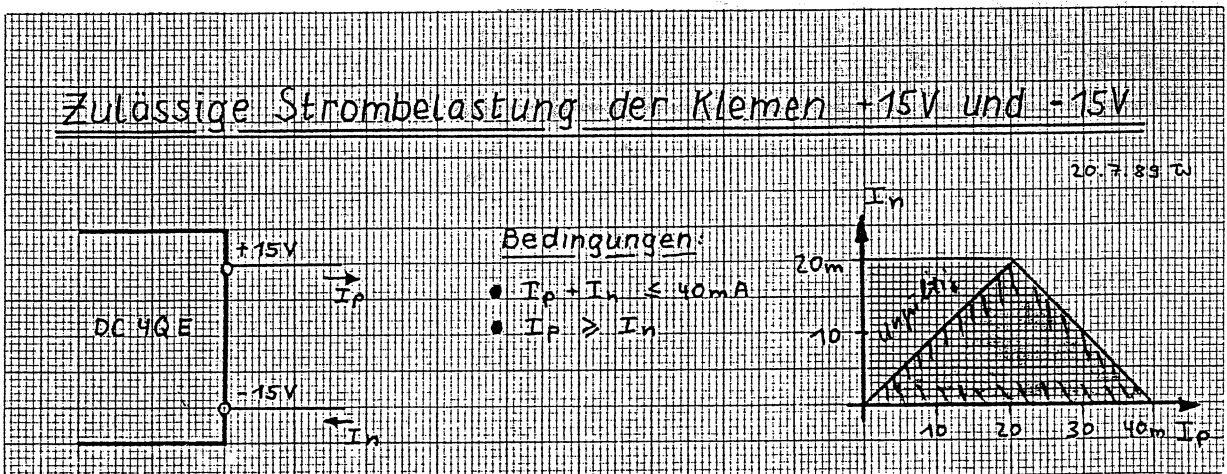 Zulässige Strombelastung der Klemen +15V und -15V
20.7.89 TW
+15V
Ip
DC 4QE
-15V
In
Bedingungen:
• Ip + In ≤ 40mA
• Ip ≥ In
In
20m
10
ungültig
10 20 30 40m Ip